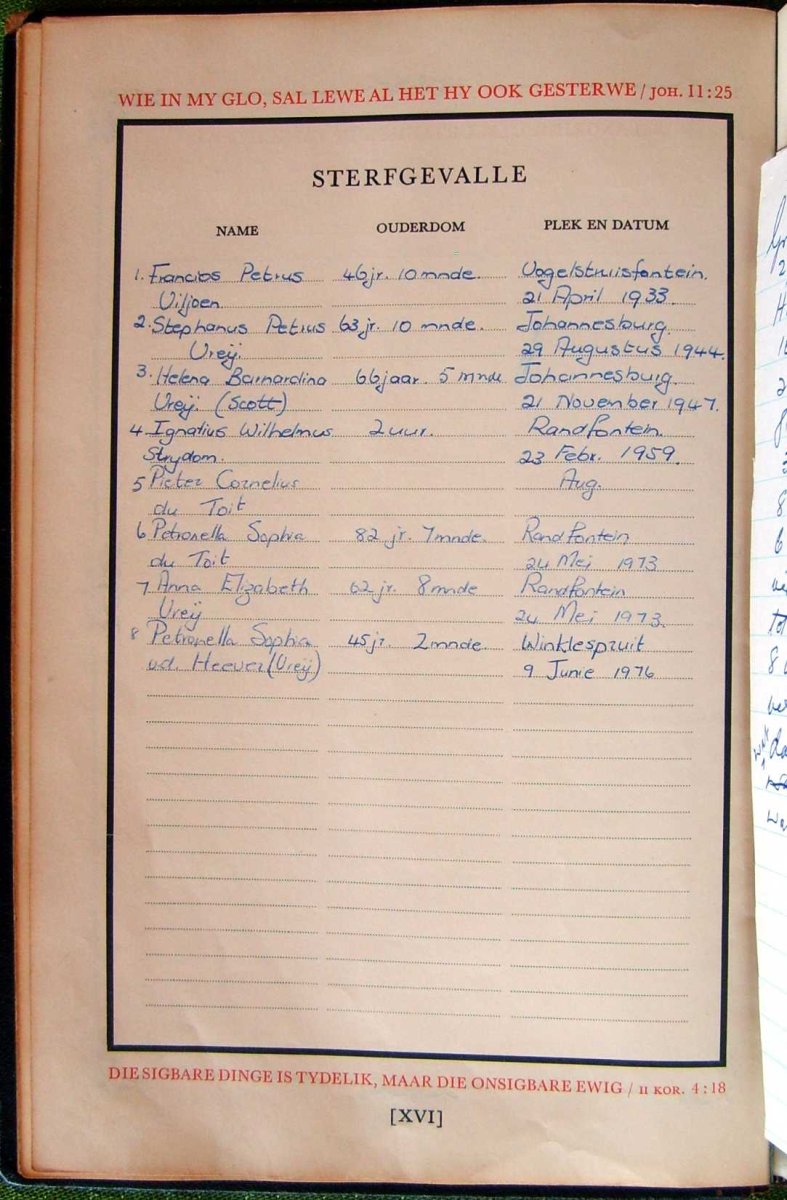 WIE IN MY GLO, SAL LEWE AL HET HY OOK GESTERWE / JOH. 11:25
STERFGEVALLE
NAME OUDERDOM PLEK EN DATUM
1. Francios Petrus 46jr. 10 mnde. Vogelstruisfontein.
Viljoen 21 April 1933.
2. Stephanus Petrus 63 jr. 10 mnde. Johannesburg.
Vreij. 29 Augustus 1944.
3. Helena Barnardina 66 jaar. 5 mnde Johannesburg.
Vreij. (Scott) 21 November 1947.
4. Ignatius Wilhelmus 2 uur. Randfontein.
Strydom. 23 Febr. 1959.
5 Pieter Cornelius Aug.
du Toit
6 Petronella Sophia 82 jr. 7 mnde. Randfontein
du Toit 24 Mei 1973
7 Anna Elizabeth 62 jr. 8 mnde Randfontein
Vreij 24 Mei 1973.
8 Petronella Sophia 45 jr. 2 mnde. Winklespruit
v.d. Heever (Vreij) 9 Junie 1976
DIE SIGBARE DINGE IS TYDELIK, MAAR DIE ONSIGBARE EWIG / II KOR. 4:18
[XVI]